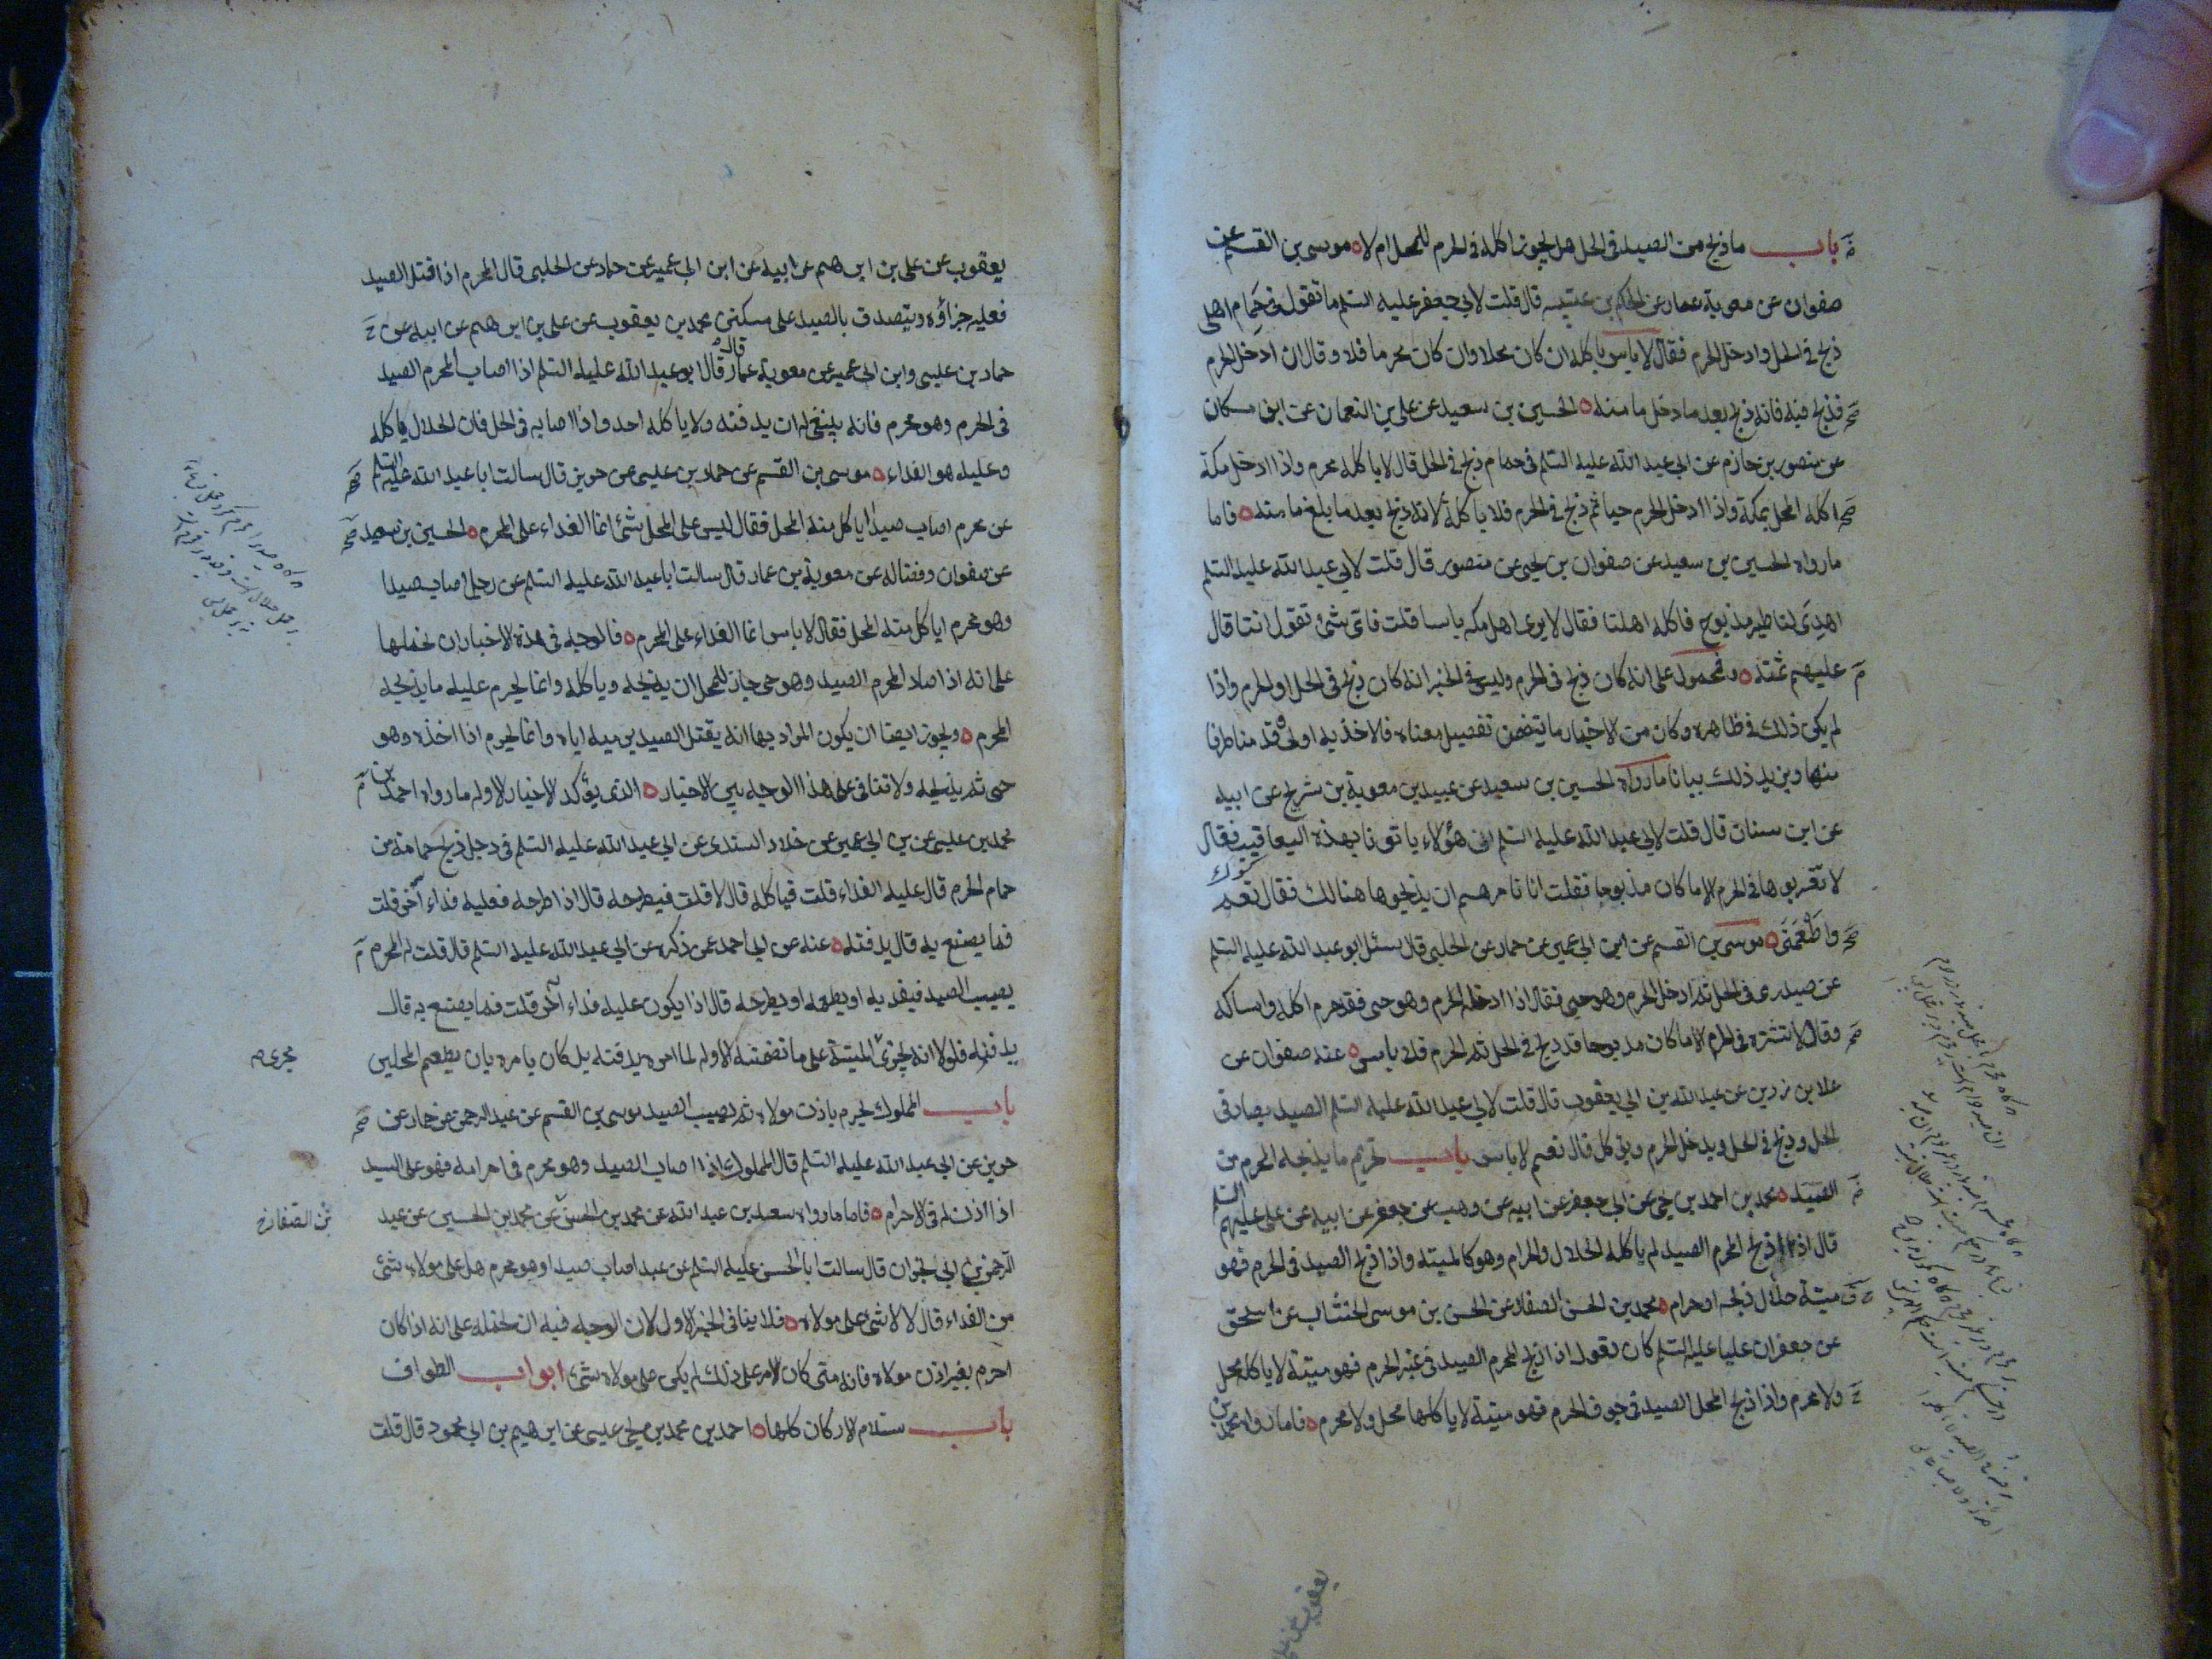 باب ما ذبح من الصيد في الحل هل يجوز اكله في الحرم للمحل ام لا ه موسى بن القسم عن
صفوان عن معوية عمار عن الحكم بن عتيبه قال قلت لابي جعفر عليه السلم ما تقول في حمام اهلي
ذبح في الحل وادخل الحرم فقال لا باس باكله ان كان محلا وان كان محرما فلا وقال ان ادخل الحرم
فذبح فيه فانه ذبح بعد ما دخل مامنه ه الحسين بن سعيد عن علي بن النعمان عن ابن مسكان
عن منصور بن حازم عن ابي عبد الله عليه السلم في حمام ذبح في الحل قال لا ياكله محرم واذا ادخل مكة
اكله المحل بمكة واذا ادخل الحرم حيا ثم ذبح في الحرم فلا ياكله لانه ذبح بعد ما بلغ مامنه ه فاما
ما رواه الحسين بن سعيد عن صفوان بن يحيى عن منصور قال قلت لابي عبد الله عليه السلم
اهدى لنا طير مذبوح فاكله اهلنا فقال لا يرى اهل مكه باسا قلت فاى شئ تقول انت قال
عليهم ثمنه ه فمحمول على انه كان ذبح في الحرم وليس في الخبر انه كان ذبح في الحل او الحرم واذا
لم يكن ذلك في ظاهره وكان من الاخبار ما يتضمن تفصيل معناه فالاخذ به اولى وقد مناطرفا
منها ويزيد ذلك بيانا ما رواه الحسين بن سعيد عن عبيد بن معوية بن شريح عن ابيه
عن ابن سنان قال قلت لابي عبد الله عليه السلم ان هؤلاء ياتونا بهذه اليعاقيب فقال
لا تقربوها في الحرم الا ما كان مذبوحا فقلت انا نامرهم ان يذبحوها هنالك فقال نعم
واطعمني ه موسى بن القسم عن ابن ابي عمير عن حماد عن الحلبي قال سئل ابو عبد الله عليه السلم
عن صيد رمى في الحل ثم ادخل الحرم وهو حى فقال اذا ادخله الحرم وهو حى فقد حرم اكله وامساكه
وقال لا تشتره في الحرم الا ما كان مذبوحا قد ذبح في الحل ثم الحرم فلا باس ه عنه صفوان عن
علا بن رزين عن عبد الله بن ابي يعقوب قال قلت لابي عبد الله عليه السلم الصيد يصاد في
الحل ويذبح في الحل ويدخل الحرم ويؤكل قال نعم لا باس باب تحريم ما يذبحه المحرم من
الصيد ه محمد بن احمد بن يحيى عن ابي جعفر عن ابيه عن وهب عن جعفر عن ابيه عن علي عليهم السلم
قال اذا ذبح المحرم الصيد لم ياكله الحلال والحرام وهو كالميتة واذا ذبح الصيد في الحرم فهو
ميتة حلال ذبحه او حرام ه محمد بن الحسن الصفار عن الحسن بن موسى الخشاب عن اسحق
عن جعفر ان عليا عليه السلم كان يقول اذا ذبح المحرم الصيد في غير الحرم فهو ميتة لا ياكله محل
ولا محرم واذا ذبح المحل الصيد في جوف الحرم فهو ميتة لا ياكلها محل ولا محرم ه فاما ما رواه محمد بن
يعقوب عن علي
يعقوب عن علي بن ابرهيم عن ابيه عن ابن ابي عمير عن حماد عن الحلبي قال المحرم اذا قتل الصيد
فعليه جزاؤه ويتصدق بالصيد على مسكين محمد بن يعقوب عن علي بن ابرهيم عن ابيه عن
حماد بن عيسى وابن ابي عمير عن معوية عمار قال قال ابو عبد الله عليه السلم اذا اصاب المحرم الصيد
في الحرم وهو محرم فانه ينبغي له ان يدفنه ولا ياكله احد واذا اصابه في الحل فان الحلال ياكله
وعليه هو الفداء ه موسى بن القسم عن حماد بن عيسى عن حريز قال سالت ابا عبد الله عليه السلم
عن محرم اصاب صيدا اياكل منه المحل فقال ليس على المحل شئ انما الفداء على المحرم ه الحسين بن سعيد
عن صفوان وفضاله عن معوية بن عمار قال سالت ابا عبد الله عليه السلم عن رجل اصاب صيدا
وهو محرم اياكل منه المحل فقال لا باس انما الفداء على المحرم ه فالوجه في هذه الاخبار ان نحملها
على انه اذا صاد المحرم الصيد وهو حى جاز للمحل ان يذبحه وياكله وانما يحرم عليه ما يذبحه
المحرم ه ويجوز ايضا ان يكون المراد بها انه يقتل الصيد برميه اياه وانما يحرم اذا اخذه وهو
حى ثم يذبحه ولا تنافى على هذا الوجه بين الاخبار ه الذى يؤكد الاخبار الاوله ما رواه احمد بن
محمد بن عيسى عن بن ابي عمير عن خلاد السندى عن ابي عبد الله عليه السلم في رجل ذبح حمامة من
حمام الحرم قال عليه الفداء قلت فياكله قال لا قلت فيطرحه قال اذا طرحه فعليه فداء آخر قلت
فما يصنع به قال يدفنه ه عنه عن ابي احمد عمن ذكره عن ابي عبد الله عليه السلم قال قلت له المحرم
يصيب الصيد فيفديه او يطعمه او يطرحه قال اذا يكون عليه فداء آخر قلت فما يصنع به قال
يدفنه فلولا انه يجرى الميتة على ما تضمنته الاوله لما امره يدفنه بل كان يامره بان يطعم المحلين
مجرى ص
باب المملوك يحرم باذن مولاه ثم يصيب الصيد موسى بن القسم عن عبد الرحمن عن حماد عن
حريز عن ابي عبد الله عليه السلم قال المملوك اذا اصاب الصيد وهو محرم في احرامه فهو على السيد
اذا اذن له في الاحرام ه فاما ما رواه سعد بن عبد الله عن محمد بن الحسن عن محمد بن الحسين عن عبد
بن الصفار خ
الرحمن بن ابي نجران قال سالت ابا الحسن عليه السلم عن عبد اصاب صيدا وهو محرم هل على مولاه شئ
من الفداء قال لا لا شئ على مولاه ه فلا ينافى الخبر الاول لان الوجه فيه ان نحمله على انه اذا كان
احرم بغير اذن مولاه فانه متى كان الامر على ذلك لم يكن على مولاه شئ ابواب الطواف
باب ستلام الاركان كلها ه احمد بن محمد بن عيسى عن ابرهيم بن ابي محمود قال قلت